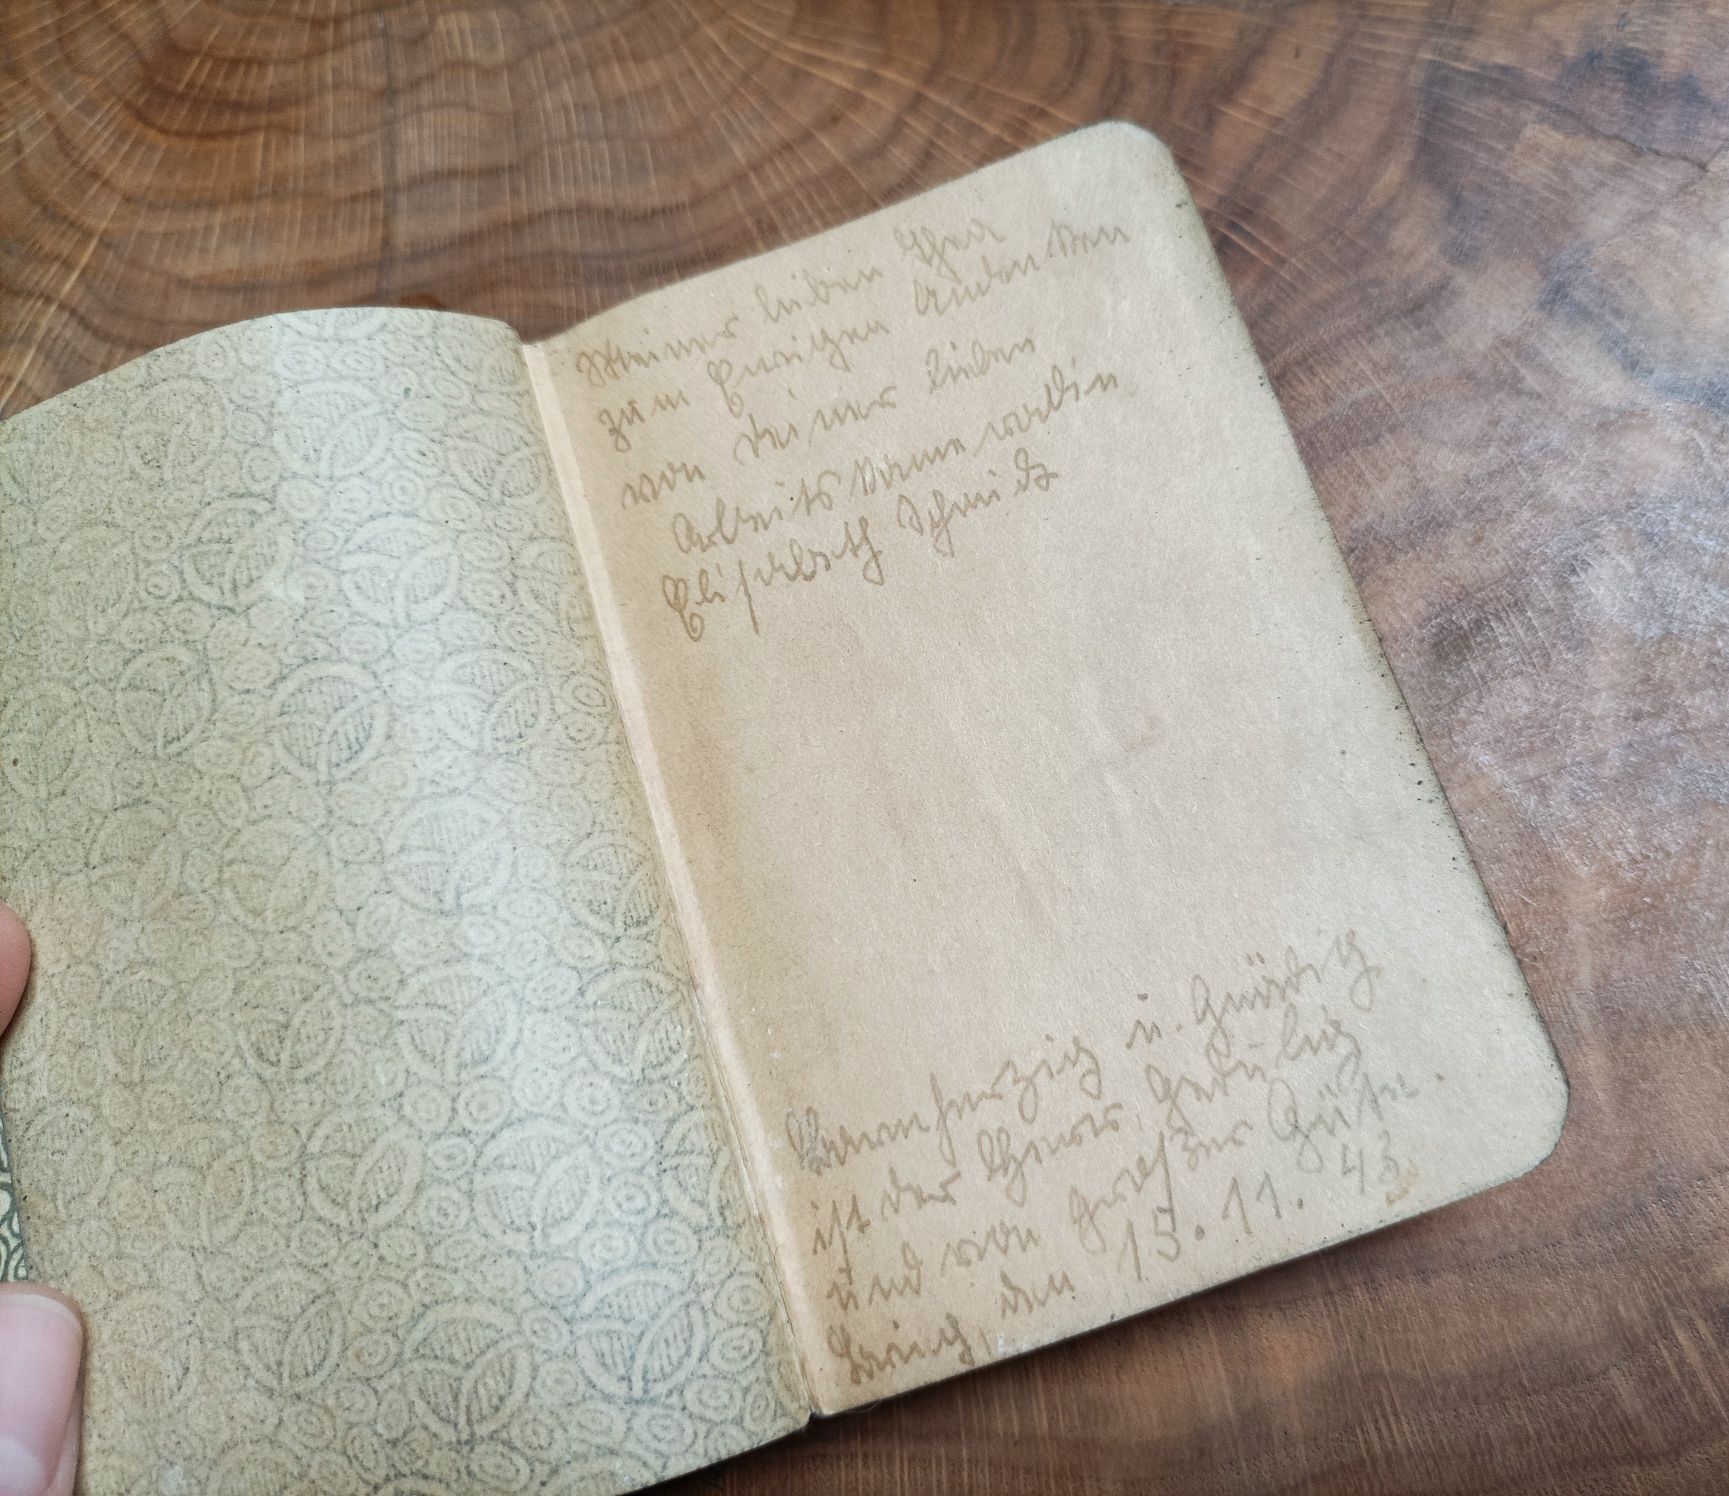 Meiner lieben Thea
zum Ewigen Andenken
von deiner lieben
Arbeitskameradin
Elisabeth Schmidt
Barmherzig u. Gnädig
ist der Herr, Gedüldig
und von großer Güte.
den 15. 11. 43